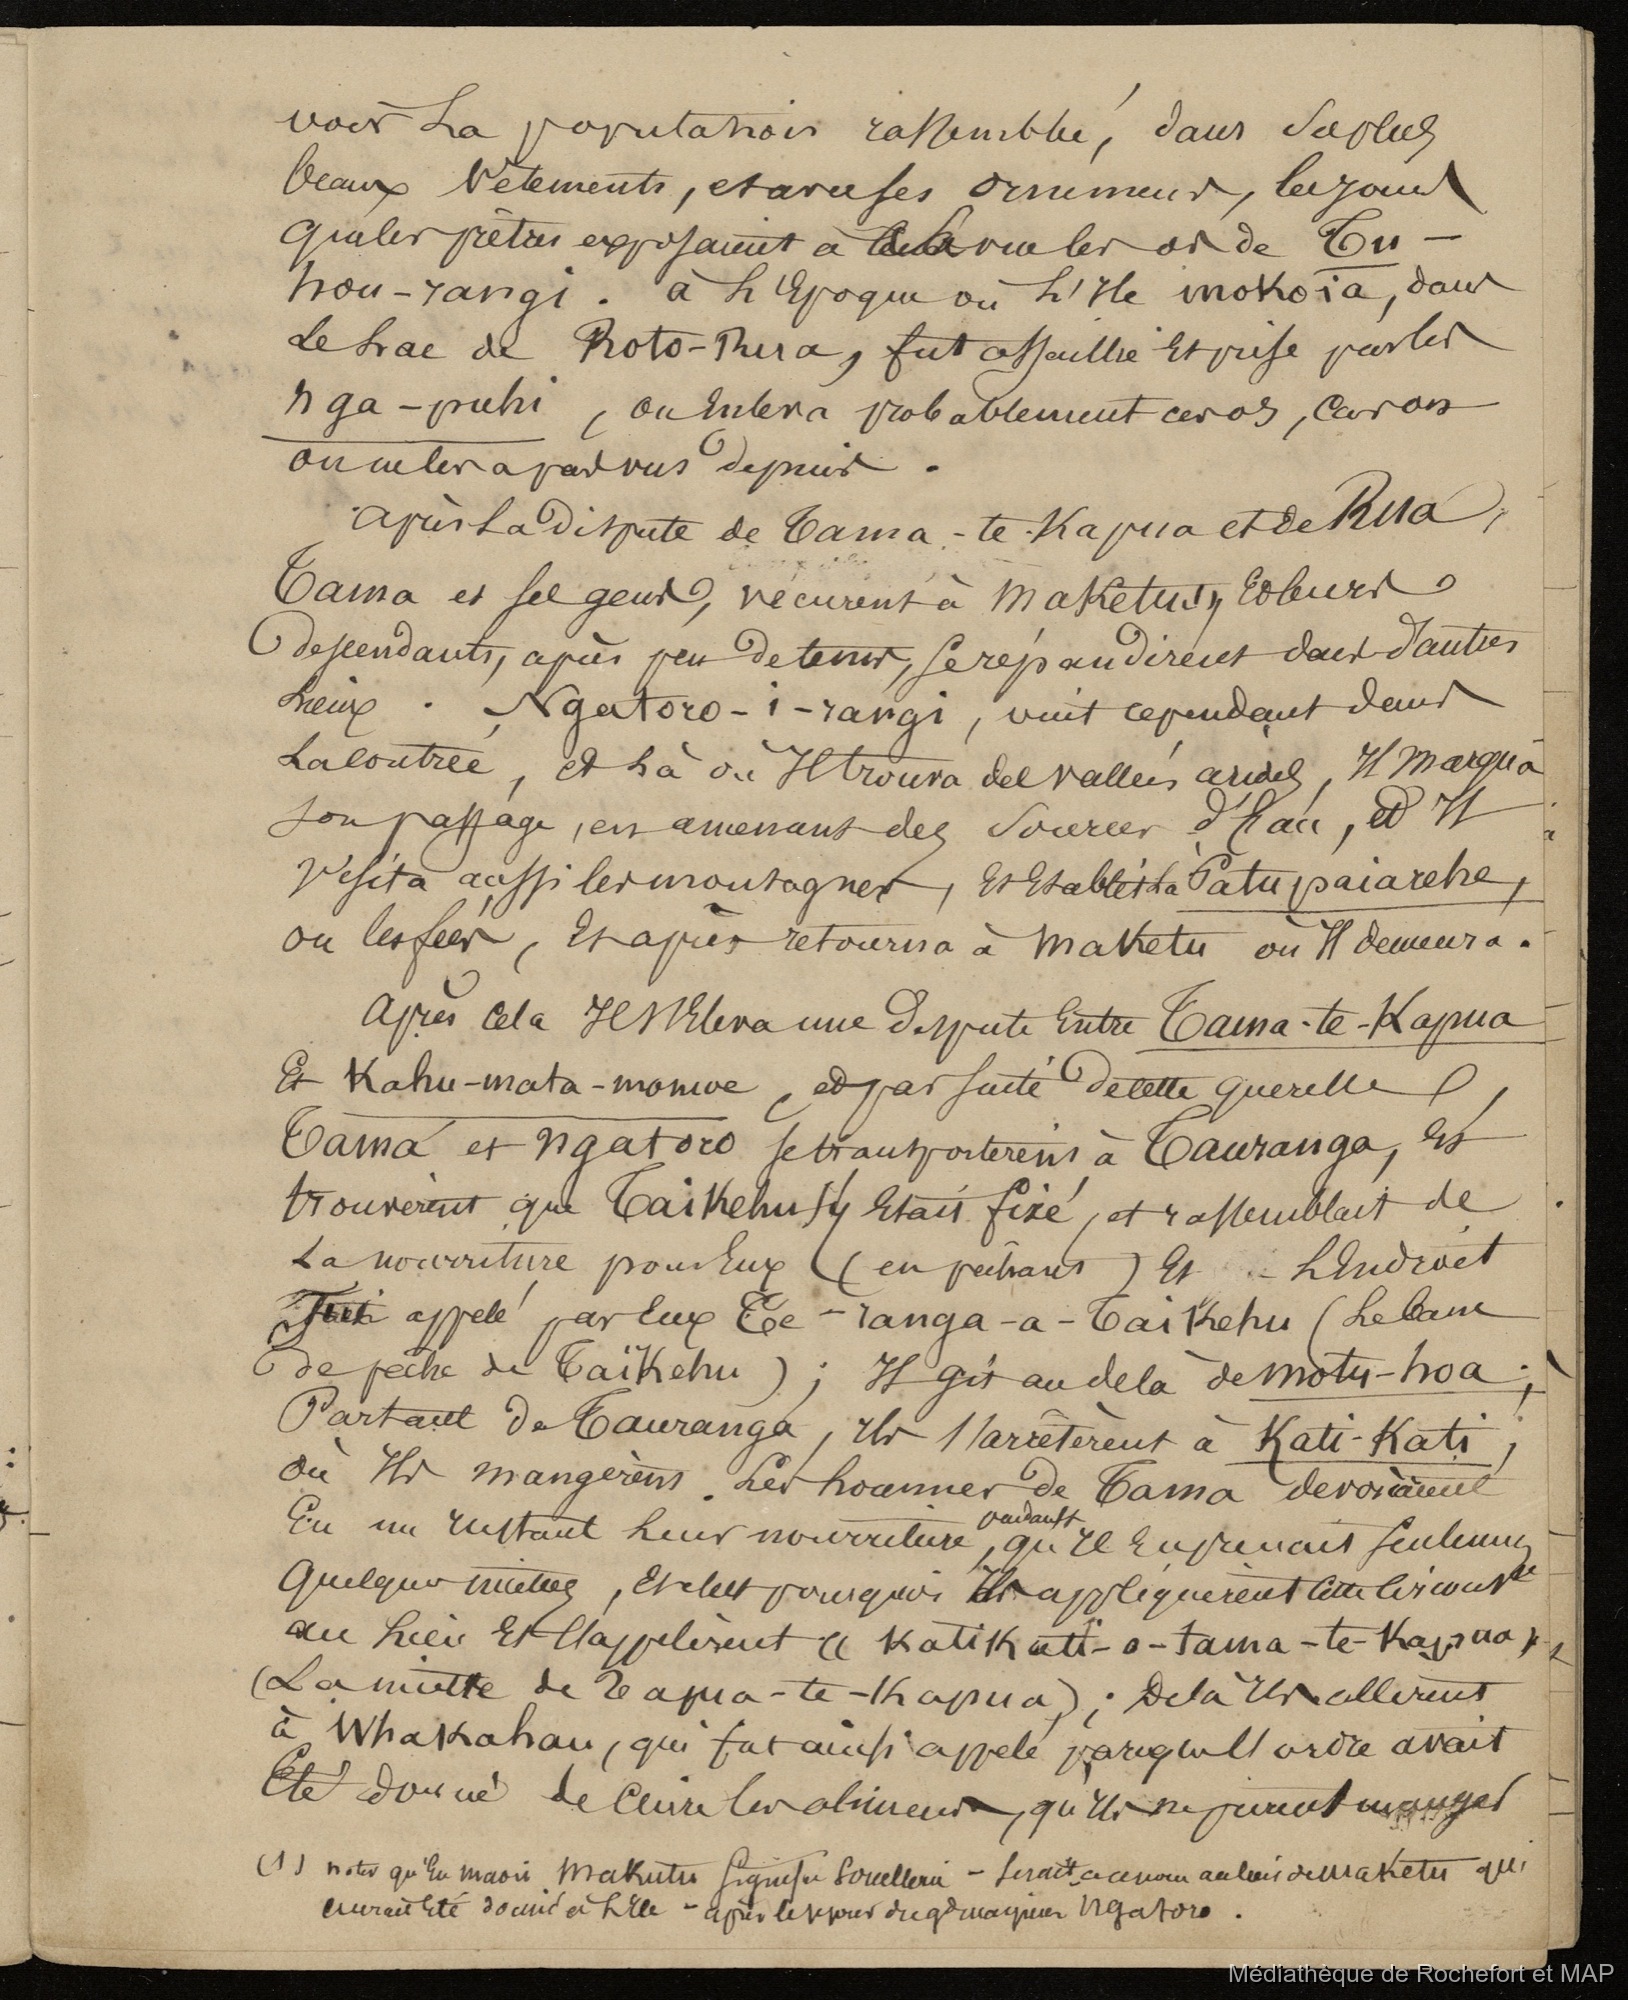 voir La population rassemblée, dans ses plus
beaux vêtements, et avec ses ornements, les jours
que les prêtres exposaient à la vue les os de Tu-
hou-rangi. à L'Epoque où L'Ile mokoia, dans
Le Lac de Roto-Rua, fut assaillie Et prise par les
nga-puhi, on Enleva probablement ces os, car on
on ne les a pas vus depuis.
après La Dispute de Tama-te-Kapua et de Rua,
Tama et ses gens, vécurent à Maketu(1), Et leurs
Descendants, après peu de tems, se répandirent dans d'autres
Lieux. Ngatoro-i-rangi, vint cependant dans
La contrée, et Là où Il trouva des vallées arides, Il marqua
son passage, en amenant des sources d'Eau, et Il
visita aussi les montagnes, Et Etablit La Patupaiarehe,
ou les fées, Et après retourna à Maketu où Il demeura.
Après cela Il s'Eleva une dispute Entre Tama-te-Kapua
Et Kahu-mata-momoe, et par suite de cette querelle,
Tama et Ngatoro se transportèrent à Tauranga, Et
trouvèrent que Taikehu s'y Etait fixé, et rassemblait de
La nourriture pour Eux (en pêchant) Et L'Endroit
fut appelé par Eux Te-ranga-a-Taikehu (Le banc
de pêche de Taïkehu); Il gît au delà de motu-hoa;
Partant de Tauranga, Ils s'arrêtèrent à Kati-Kati,
où Ils mangèrent. Les hommes de Tama dévoraient
En un Instant leur nourriture, pendant qu'Il En prenait seulement
quelques miettes, Et c'est pourquoi Ils appliquèrent cette circonstce
au Lieu Et l'appelèrent « Katikati-o-tama-te-Kapua »
(La miette de Tapua-te-Kapua); De là Ils allèrent
à Whakahau, qui fut ainsi appelé parceque l'ordre avait
Eté donné de Cuire les aliments, qu'Ils ne purent manger
(1) noter qu'En maori Makutu signifie Sorcellerie - serait ce ce nom au lieu de Maketu qui
aurait Eté donné à L'Ile - après le séjour du gd magicien Ngatoro.